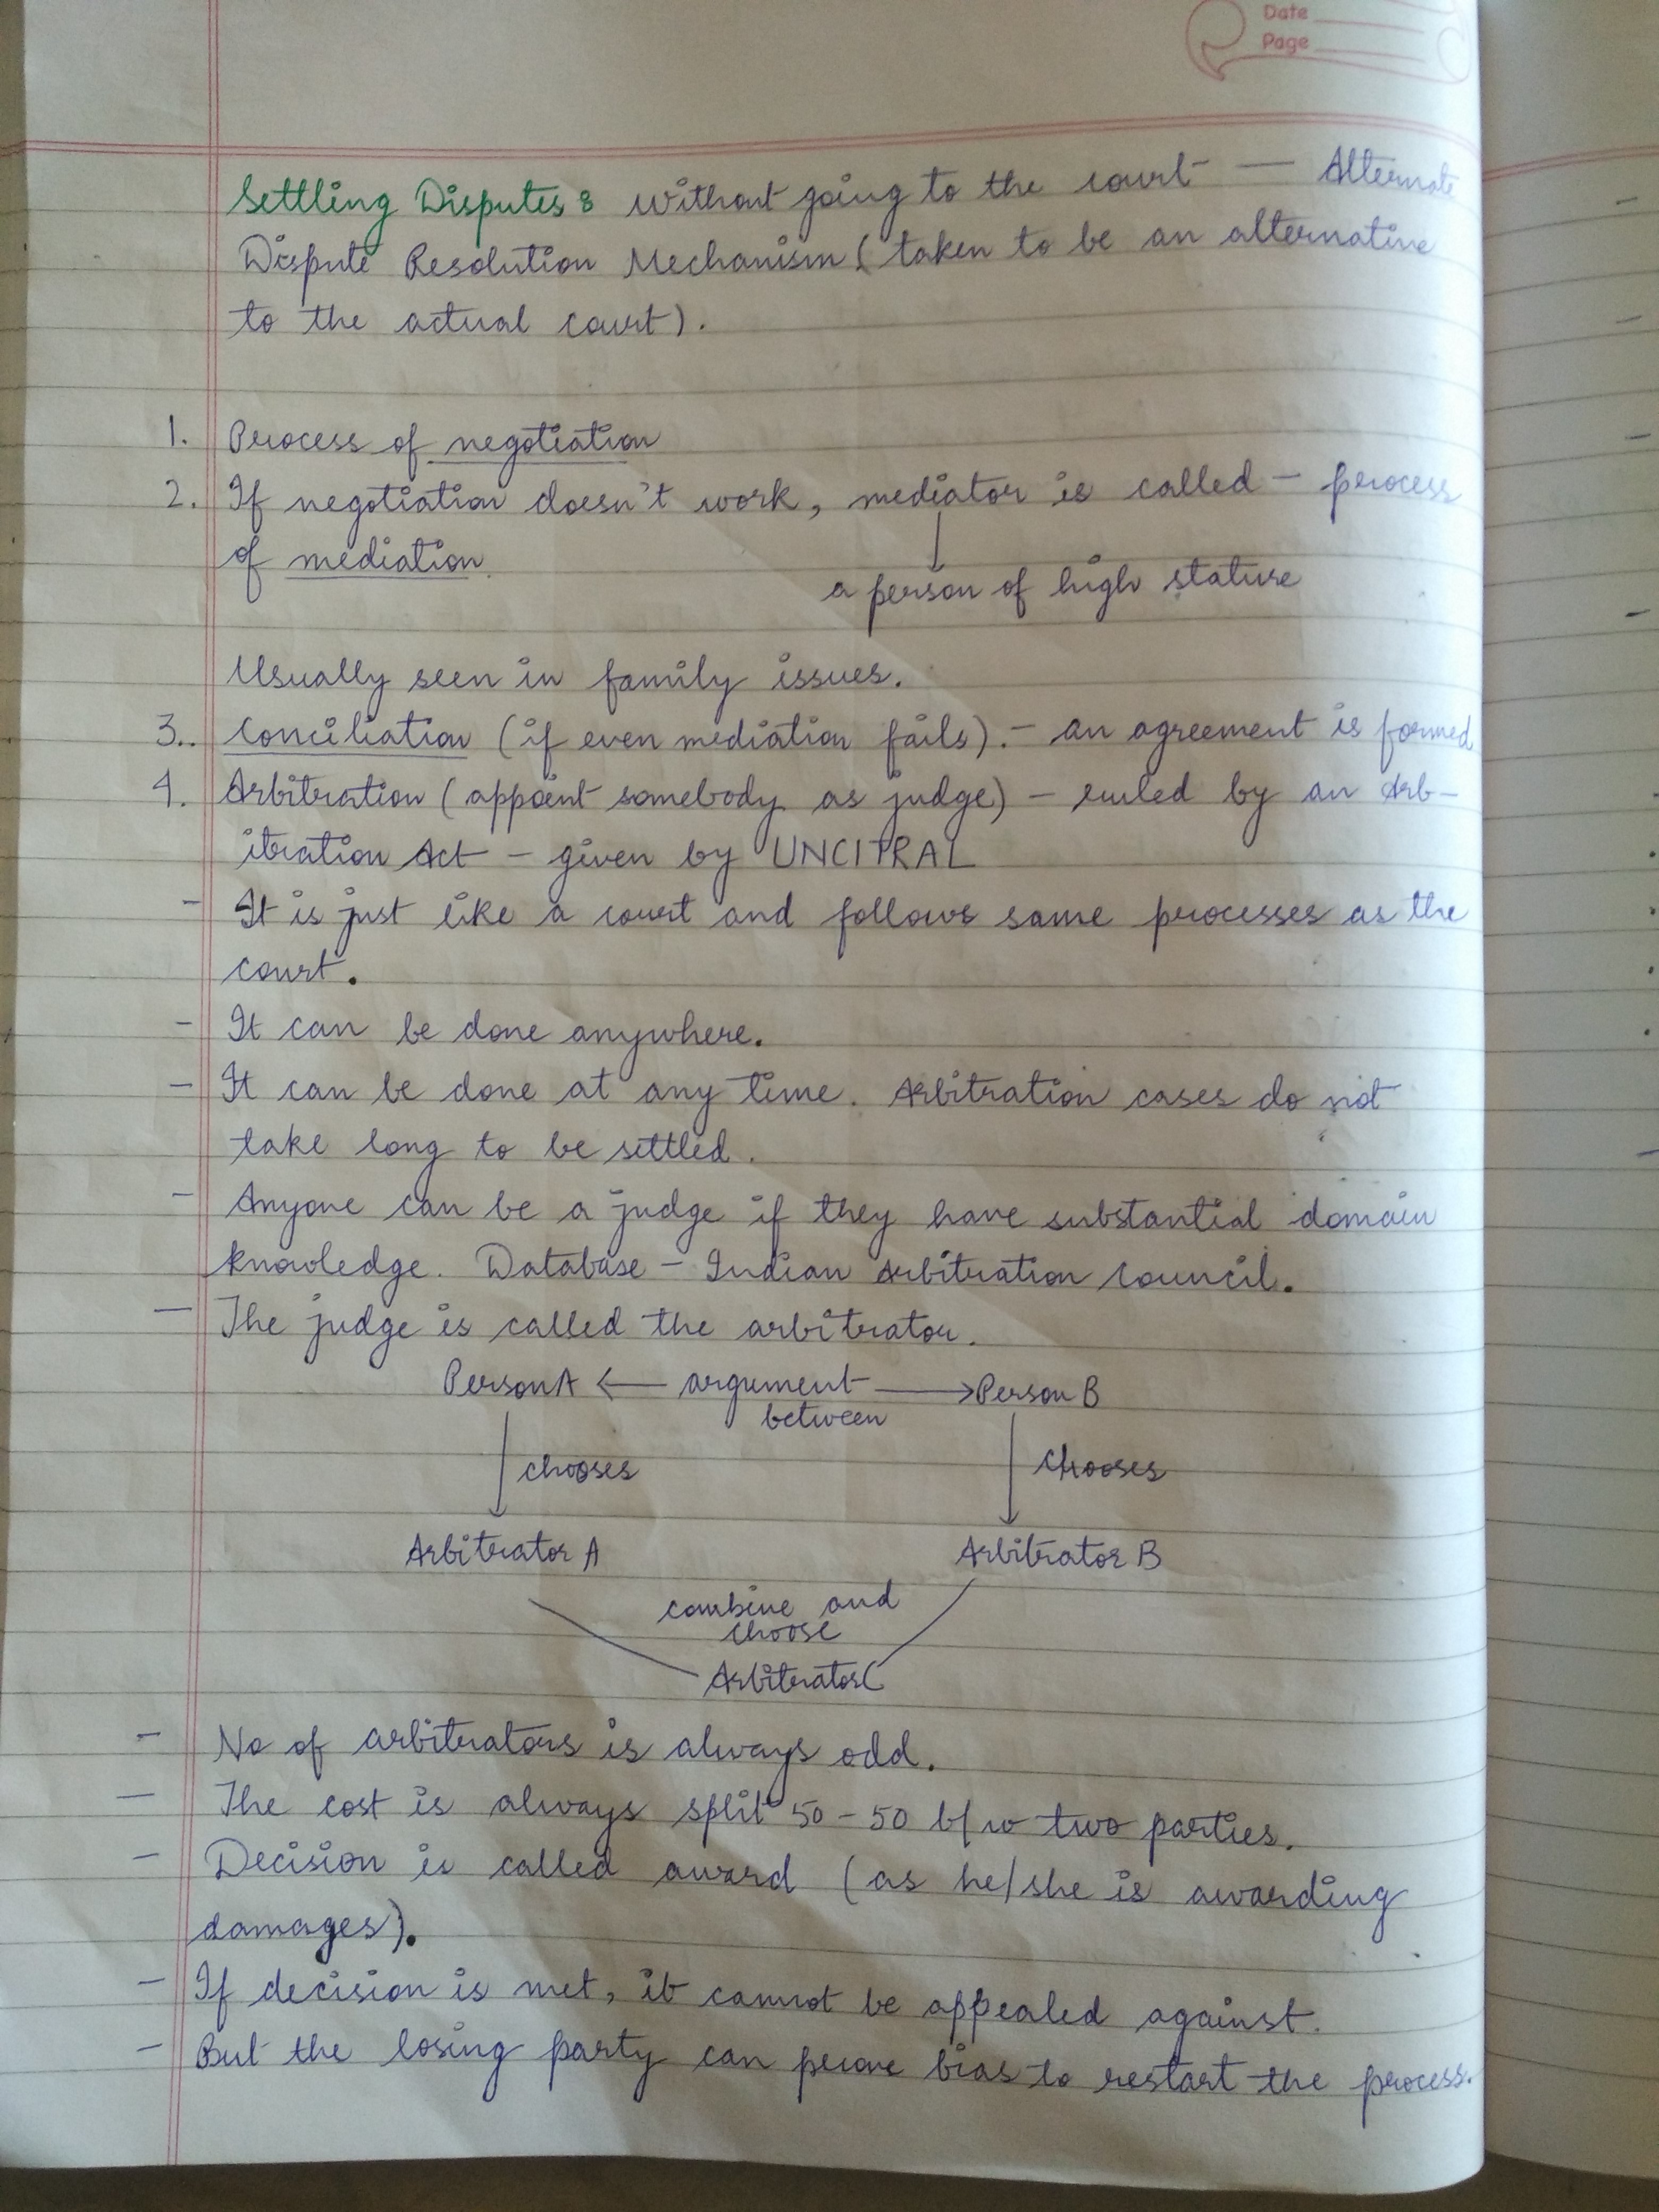 Date
Page
Settling Disputes : Without going to the court — Alternate
Dispute Resolution Mechanism (taken to be an alternative
to the actual court).
1. Process of negotiation
2. If negotiation doesn't work, mediator is called - process
of mediation.
a person of high stature
Usually seen in family issues.
3.. Conciliation (if even mediation fails). - an agreement is formed
4. Arbitration (appoint somebody as judge) - ruled by an Arb-
itration Act - given by UNCITRAL
- It is just like a court and follows same processes as the
court.
- It can be done anywhere.
- It can be done at any time. Arbitration cases do not
take long to be settled.
- Anyone can be a judge if they have substantial domain
knowledge. Database - Indian Arbitration Council.
- The judge is called the arbitrator.
Person A ← argument → Person B
between
chooses chooses
Arbitrator A Arbitrator B
combine and
choose
Arbitrator C
- No of arbitrators is always odd.
- The cost is always split 50-50 b/w two parties.
- Decision is called award (as he/she is awarding
damages).
- If decision is met, it cannot be appealed against.
- But the losing party can prove bias to restart the process.